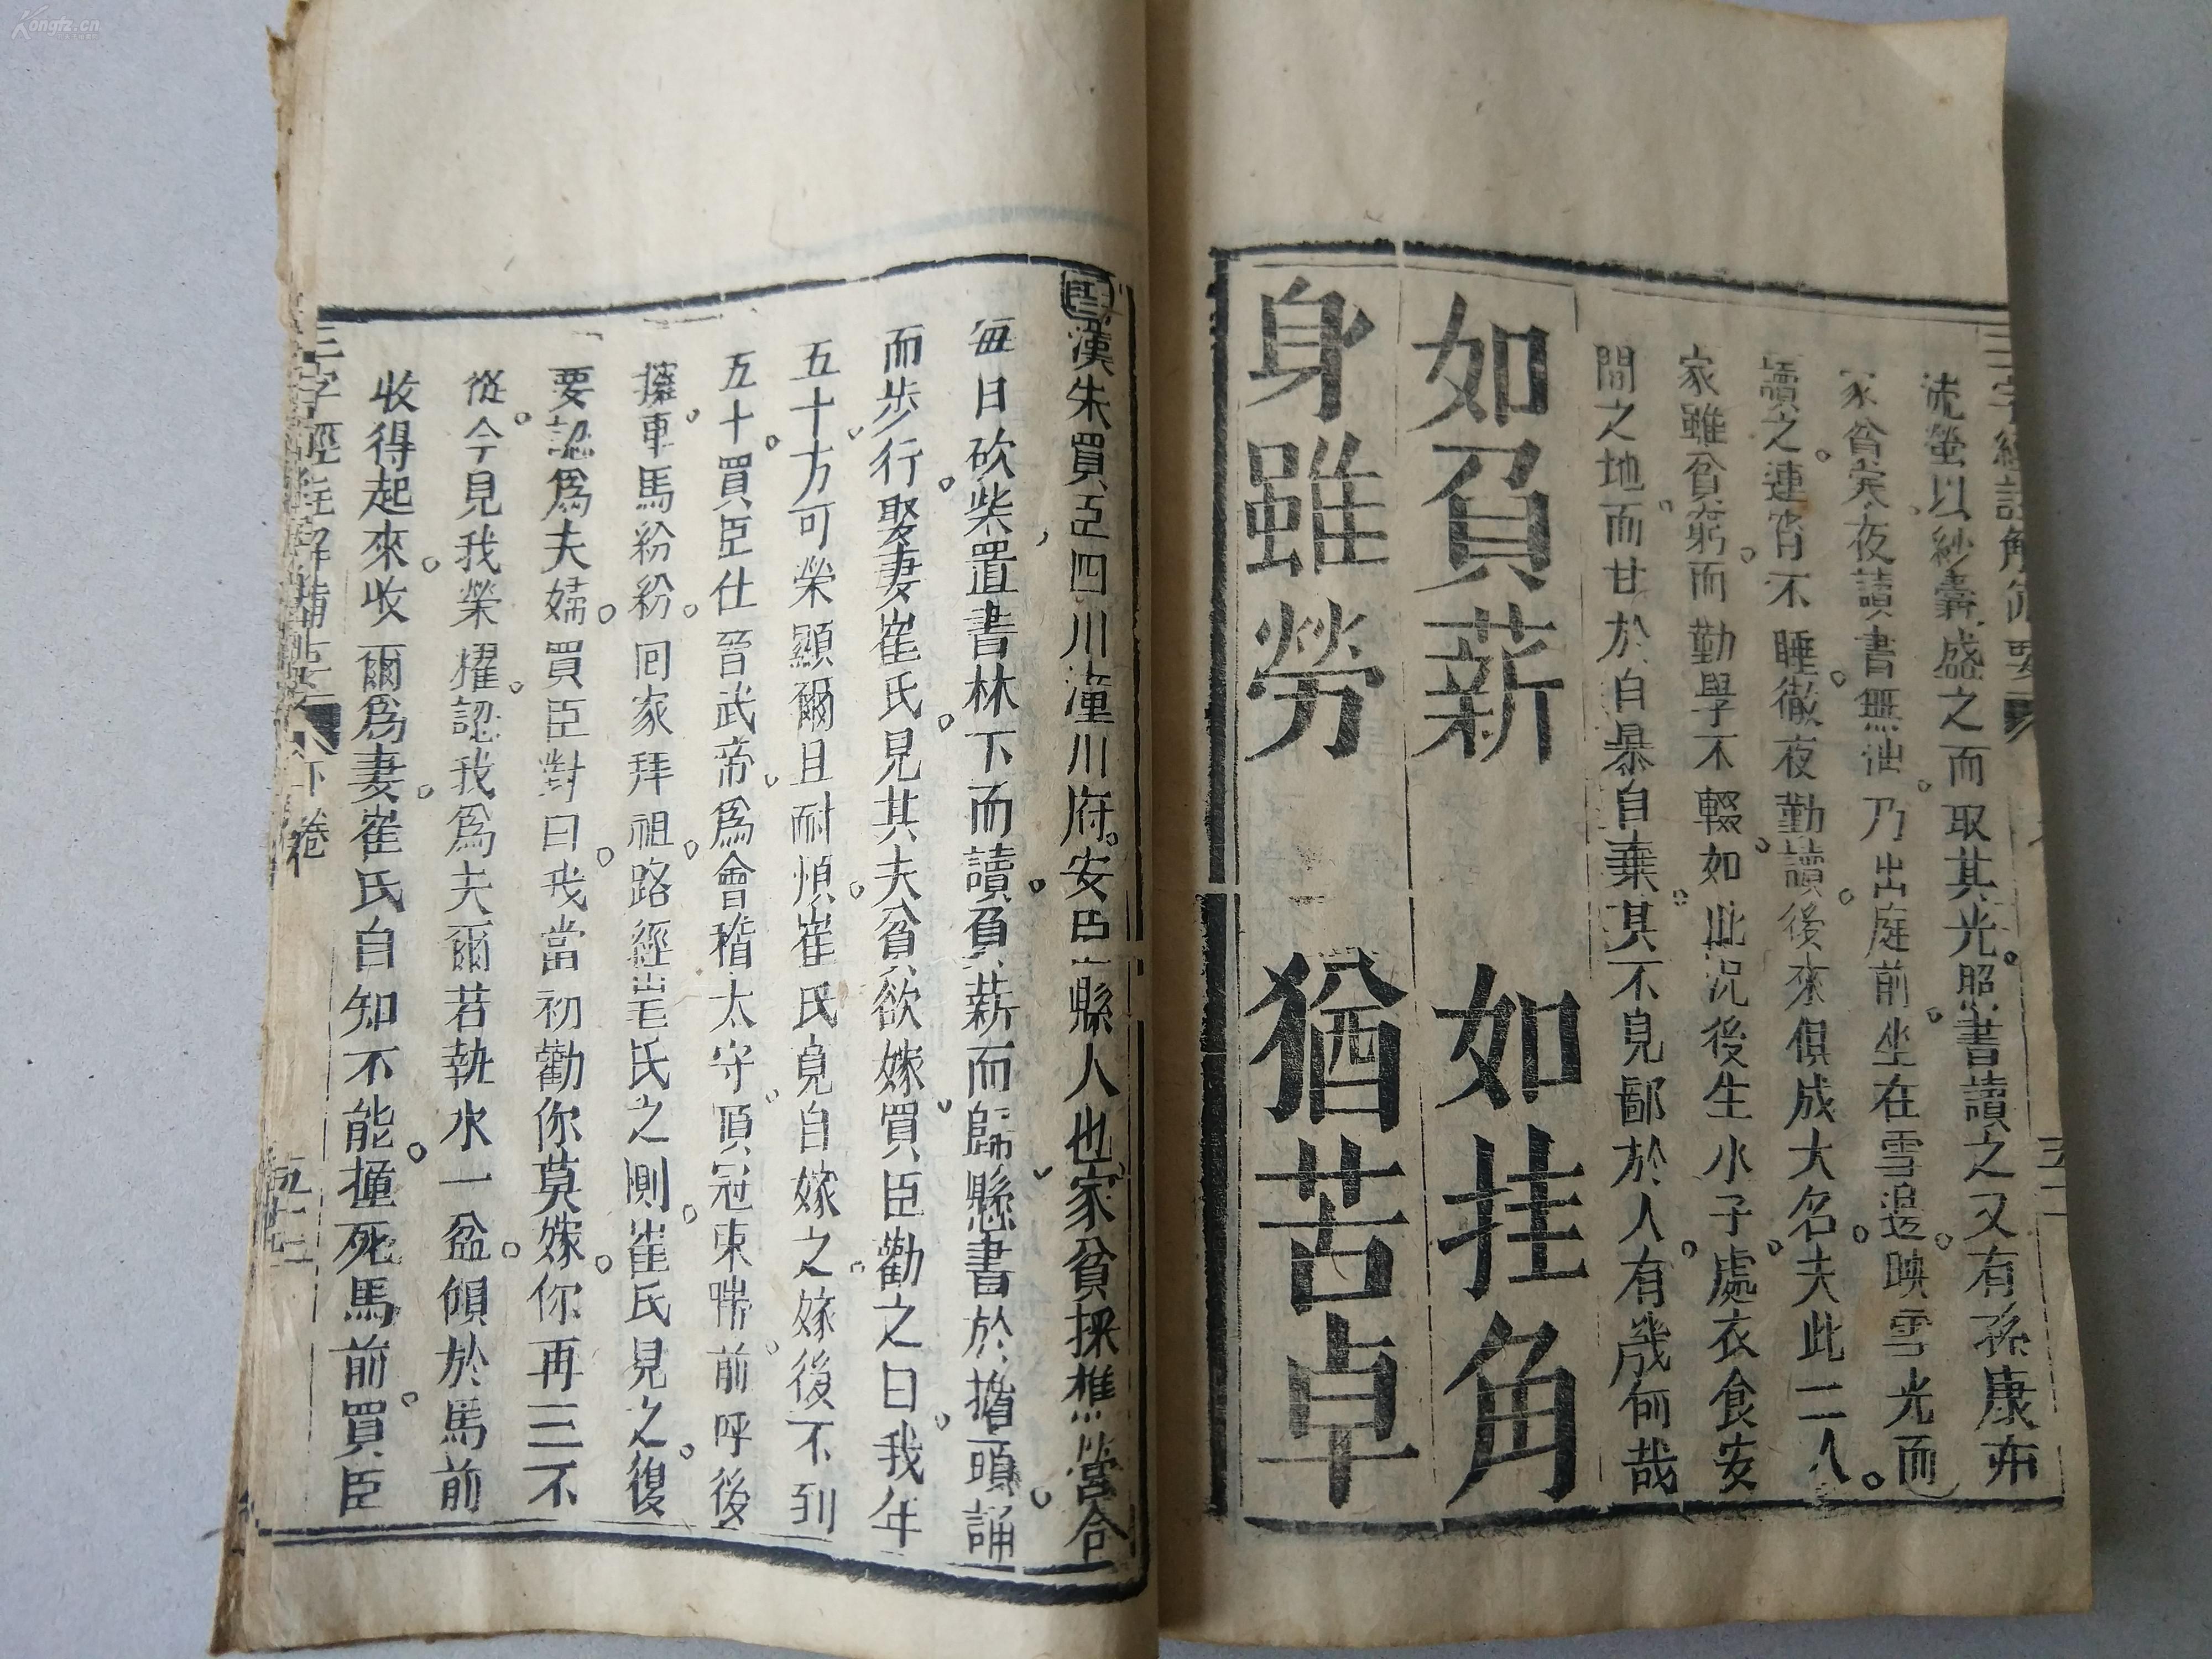 Kongfz.cn
流螢以紗囊盛之而取其光照書讀之又有孫康亦
家貧矣夜讀書無油乃出庭前坐在雪邊映雪光而
讀之連宵不睡徹夜勤讀後來俱成大名夫此二人
家雖貧窮而勤學不輟如此況後生小子處衣食安
閒之地而甘於自暴自棄其不見鄙於人有幾何哉
如負薪 如挂角
身雖勞 猶苦卓
漢朱買臣四川潼川府安縣人也家貧採樵營合
每日砍柴置書林下而讀負薪而歸懸書於擔頭誦
而步行娶妻崔氏見其夫貧欲嫁買臣勸之曰我年
五十方可榮顯爾且耐煩崔氏竟自嫁之嫁後不到
五十買臣仕晉武帝為會稽太守頂冠束帶前呼後
擁車馬紛紛囘家拜祖路經毛氏之側崔氏見之復
要認為夫婦買臣對曰我當初勸你莫嫁你再三不
從今見我榮耀認我為夫爾若執水一盆傾於馬前
收得起來收爾為妻崔氏自知不能撞死馬前買臣
三字經註解備要 下卷